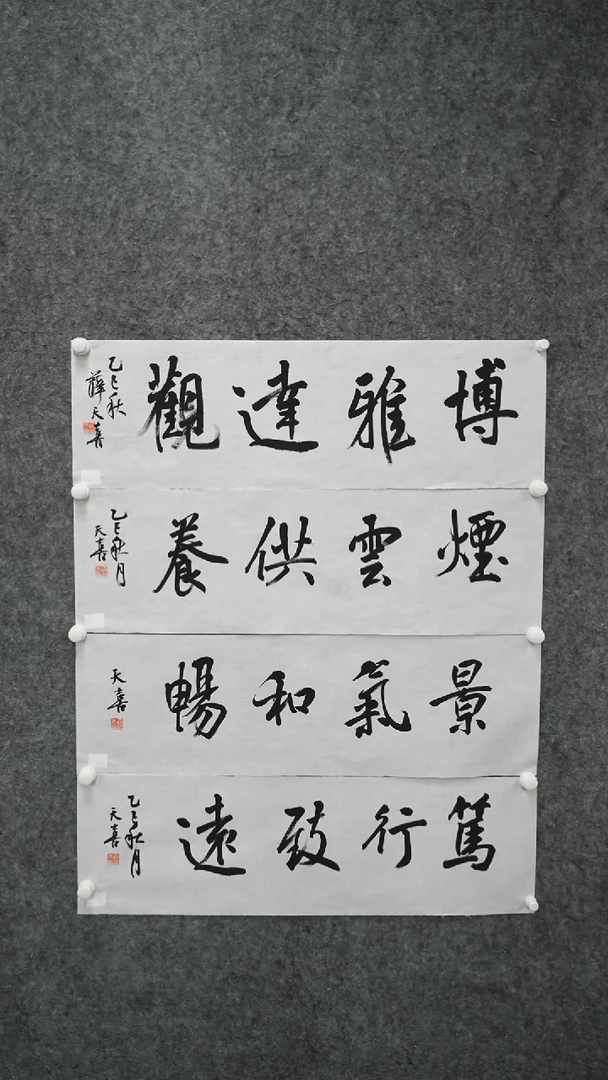 博雅達觀
乙巳秋
薛天喜
煙雲供養
乙巳秋月
天喜
景氣和暢
天喜
篤行致遠
乙巳秋月
天喜